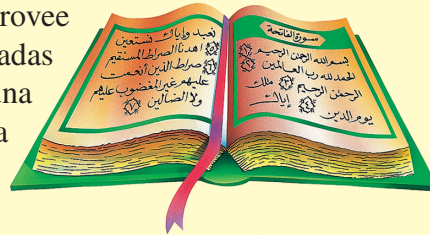 rovee
adas
na
a
سورة الفاتحة
بسم الله الرحمن الرحيم
الحمد لله رب العالمين
الرحمن الرحيم ملك
يوم الدين إياك
نعبد وإياك نستعين
اهدنا الصراط المستقيم
صراط الذين أنعمت
عليهم غير المغضوب عليهم
ولا الضالين